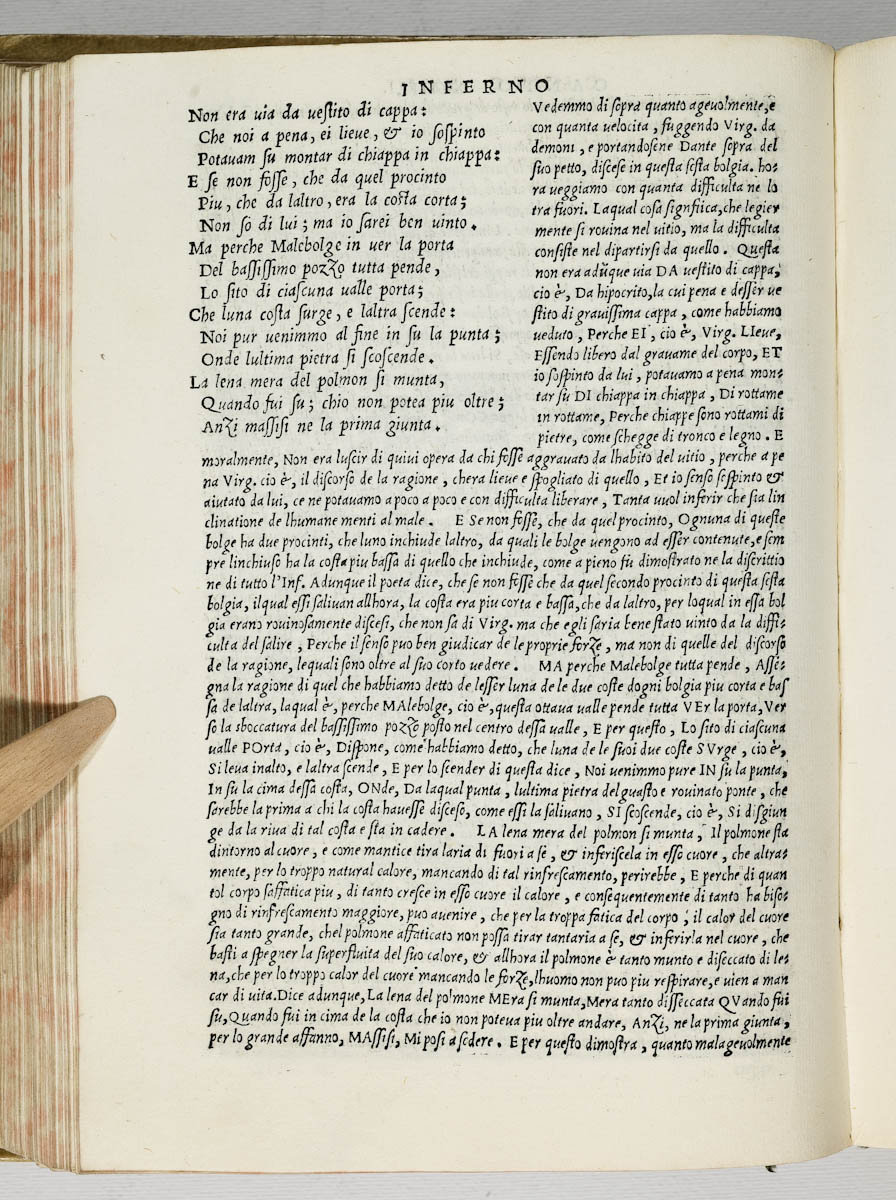 INFERNO
Non era uia da uestito di cappa:
Che noi a pena, ei lieue, & io sospinto
Potauam su montar di chiappa in chiappa:
E se non fosse, che da quel procinto
Piu, che da laltro, era la costa corta;
Non so di lui; ma io sarei ben uinto.
Ma perche Malebolge in uer la porta
Del bassissimo pozzo tutta pende,
Lo sito di ciascuna ualle porta;
Che luna costa surge, e laltra scende:
Noi pur uenimmo al fine in su la punta;
Onde lultima pietra si scoscende.
La lena mera del polmon si munta,
Quando fui su; chio non potea piu oltre;
Anzi massisi ne la prima giunta.
Vedemmo di sopra quanto ageuolmente, e
con quanta uelocita, fuggendo Virg. da
demoni, e portandosene Dante sopra del
suo petto, discese in questa sesta bolgia. ho-
ra ueggiamo con quanta difficulta ne lo
tra fuori. Laqual cosa signfiica, che legier
mente si rouina nel uitio, ma la difficulta
consiste nel dipartirsi da quello. Questa
non era adũque uia DA uestito di cappa,
cio è, Da hipocrito, la cui pena e desser ue
stito di grauissima cappa, come habbiamo
ueduto, Perche EI, cio è, Virg. LIeue,
Essendo libero dal grauame del corpo, ET
io sospinto da lui, potauamo a pena mon-
tar su DI chiappa in chiappa, Di rottame
in rottame, Perche chiappe sono rottami di
pietre, come schegge di tronco e legno. E
moralmente, Non era luscir di quiui opera da chi fosse aggrauato da lhabito del uitio, perche a pe
na Virg. cio è, il discorso de la ragione, chera lieue e spogliato di quello, Et io senso sospinto &
aiutato da lui, ce ne potauamo a poco a poco e con difficulta liberare, Tanta uuol inferir che sia lin
clinatione de lhumane menti al male. E Se non fosse, che da quel procinto, Ognuna di queste
bolge ha due procinti, che luno inchiude laltro, da quali le bolge uengono ad esser contenute, e sem
pre linchiuso ha la costa piu bassa di quello che inchiude, come a pieno fu dimostrato ne la discrittio
ne di tutto l'Inf. Adunque il poeta dice, che se non fosse che da quel secondo procinto di questa sesta
bolgia, ilqual essi saliuan allhora, la costa era piu corta e bassa, che da laltro, per loqual in essa bol
gia erano rouinosamente discesi, che non sa di Virg. ma che egli saria bene stato uinto da la diffi-
culta del salire, Perche il senso puo ben giudicar de le proprie forze, ma non di quelle del discorso
de la ragione, lequali sono oltre al suo corto uedere. MA perche Malebolge tutta pende, Asse-
gna la ragione di quel che habbiamo detto de lesser luna de le due coste dogni bolgia piu corta e bas
sa de laltra, laqual è, perche MAlebolge, cio è, questa ottaua ualle pende tutta VEr la porta, Ver
so la sboccatura del bassissimo pozzo posto nel centro dessa ualle, E per questo, Lo sito di ciascuna
ualle POrta, cio è, Dispone, come habbiamo detto, che luna de le suoi due coste SVrge, cio è,
Si leua inalto, e laltra scende, E per lo scender di questa dice, Noi uenimmo pure IN su la punta,
In su la cima dessa costa, ONde, Da laqual punta, lultima pietra del guasto e rouinato ponte, che
sarebbe la prima a chi la costa hauesse disceso, come essi la saliuano, SI scoscende, cio è, Si disgiun
ge da la riua di tal costa e sta in cadere. LA lena mera del polmon si munta, Il polmone sta
dintorno al cuore, e come mantice tira laria di fuori a se, & inferiscela in esso cuore, che altra-
mente, per lo troppo natural calore, mancando di tal rinfrescamento, perirebbe, E perche di quan
tol corpo saffatica piu, di tanto cresce in esso cuore il calore, e consequentemente di tanto ha biso-
gno di rinfrescamento maggiore, puo auenire, che per la troppa fatica del corpo, il calor del cuore
sia tanto grande, chel polmone affaticato non possa tirar tantaria a se, & inferirla nel cuore, che
basti a spegner la superfluita del suo calore, & allhora il polmone è tanto munto e diseccato di le-
na, che per lo troppo calor del cuore mancando le forze, lhuomo non puo piu respirare, e uien a man
car di uita. Dice adunque, La lena del polmone MEra si munta, Mera tanto disseccata QVando fui
su, Quando fui in cima de la costa che io non poteua piu oltre andare, Anzi, ne la prima giunta,
per lo grande affanno, MAssisi, Mi posi a sedere. E per questo dimostra, quanto malageuolmente